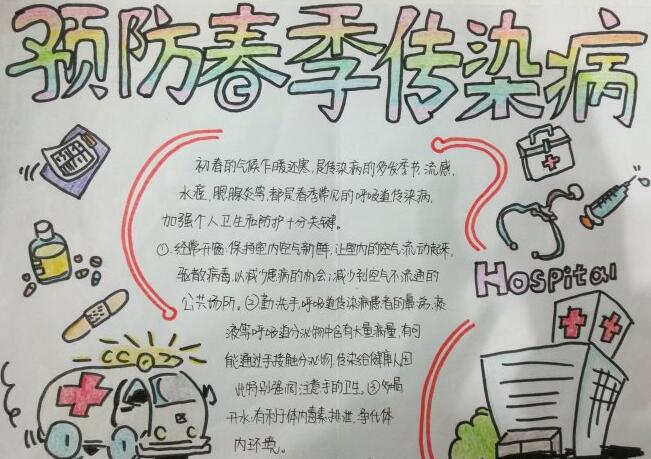 预防春季传染病
初春的气候乍暖还寒,是传染病的多发季节,流感、
水痘、腮腺炎等,都是春季常见的呼吸道传染病,
加强个人卫生和防护十分关键。
①经常开窗,保持室内空气新鲜,让室内的空气流动起来,
驱散病毒,以减少患病的机会;减少到空气不流通的
公共场所。②勤洗手,呼吸道传染病患者的鼻涕、痰
液等呼吸道分泌物中含有大量病毒,有可
能通过手接触分泌物,传染给健康人,因
此特别强调注意手的卫生。③多喝
开水,有利于体内毒素排泄,净化体
内环境。
Hospital